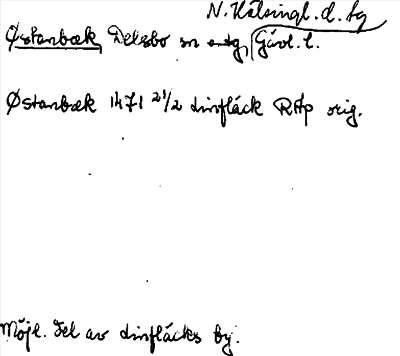 N. Hälsingl. d. sg
Østanbæk, Delsbo sn, Gävl. l.
Østanbæk 1471 2 1/2 dinfläck RAp orig.
Möjl. del av dinfläcks by.